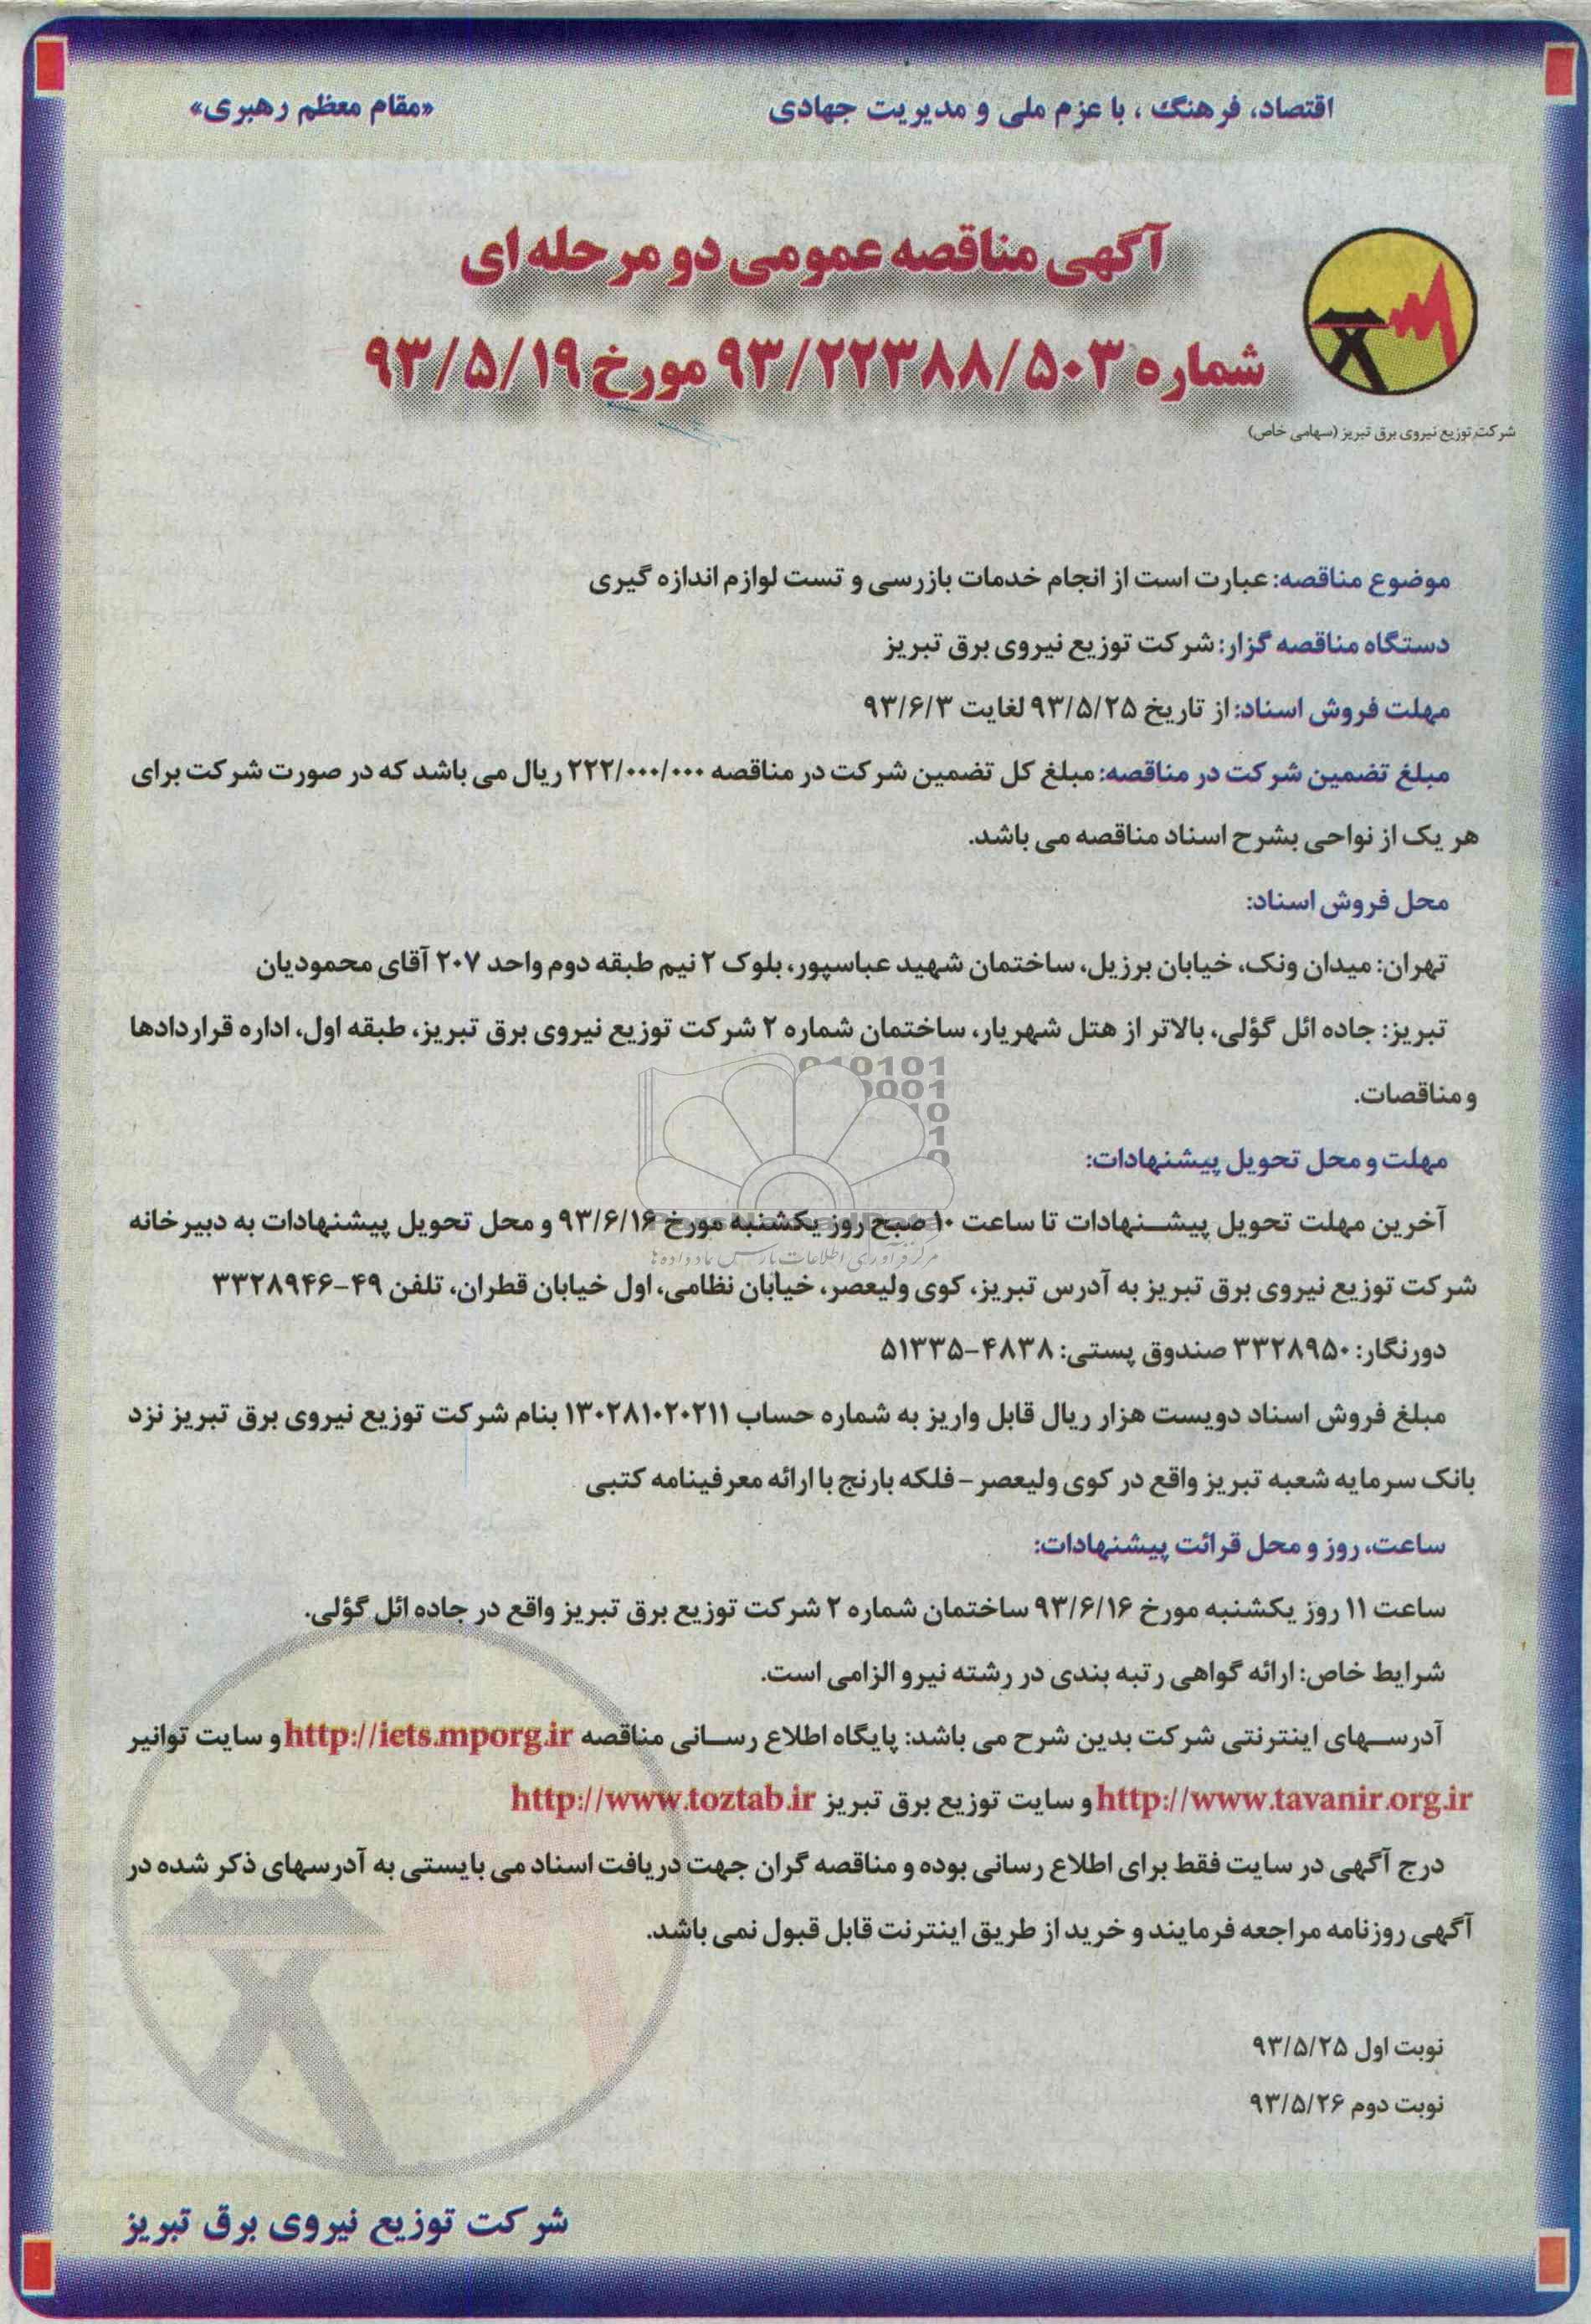 اقتصاد، فرهنگ ، با عزم ملی و مدیریت جهادی «مقام معظم رهبری»
آگهی مناقصه عمومی دو مرحله ای
شماره ۹۳/۲۲۳۸۸/۵۰۳ مورخ ۹۳/۵/۱۹
شرکت توزیع نیروی برق تبریز (سهامی خاص)
موضوع مناقصه: عبارت است از انجام خدمات بازرسی و تست لوازم اندازه گیری
دستگاه مناقصه گزار: شرکت توزیع نیروی برق تبریز
مهلت فروش اسناد: از تاریخ ۹۳/۵/۲۵ لغایت ۹۳/۶/۳
مبلغ تضمین شرکت در مناقصه: مبلغ کل تضمین شرکت در مناقصه ۲۲۲/۰۰۰/۰۰۰ ریال می باشد که در صورت شرکت برای
هر یک از نواحی بشرح اسناد مناقصه می باشد.
محل فروش اسناد:
تهران: میدان ونک، خیابان برزیل، ساختمان شهید عباسپور، بلوک ۲ نیم طبقه دوم واحد ۲۰۷ آقای محمودیان
تبریز: جاده ائل گؤلی، بالاتر از هتل شهریار، ساختمان شماره ۲ شرکت توزیع نیروی برق تبریز، طبقه اول، اداره قراردادها
و مناقصات.
مهلت و محل تحویل پیشنهادات:
آخرین مهلت تحویل پیشنهادات تا ساعت ۱۰ صبح روز یکشنبه مورخ ۹۳/۶/۱۶ و محل تحویل پیشنهادات به دبیرخانه
مرکز فرآوری اطلاعات پارس ماد داده ها
شرکت توزیع نیروی برق تبریز به آدرس تبریز، کوی ولیعصر، خیابان نظامی، اول خیابان قطران، تلفن ۴۹-۳۳۲۸۹۴۶
دورنگار: ۳۳۲۸۹۵۰ صندوق پستی: ۴۸۳۸-۵۱۳۳۵
مبلغ فروش اسناد دویست هزار ریال قابل واریز به شماره حساب ۱۳۰۲۸۱۰۲۰۲۱۱ بنام شرکت توزیع نیروی برق تبریز نزد
بانک سرمایه شعبه تبریز واقع در کوی ولیعصر - فلکه بارنج با ارائه معرفینامه کتبی
ساعت، روز و محل قرائت پیشنهادات:
ساعت ۱۱ روز یکشنبه مورخ ۹۳/۶/۱۶ ساختمان شماره ۲ شرکت توزیع برق تبریز واقع در جاده ائل گؤلی.
شرایط خاص: ارائه گواهی رتبه بندی در رشته نیرو الزامی است.
آدرسهای اینترنتی شرکت بدین شرح می باشد: پایگاه اطلاع رسانی مناقصه http://iets.mporg.ir و سایت توانیر
http://www.tavanir.org.ir و سایت توزیع برق تبریز http://www.toztab.ir
درج آگهی در سایت فقط برای اطلاع رسانی بوده و مناقصه گران جهت دریافت اسناد می بایستی به آدرسهای ذکر شده در
آگهی روزنامه مراجعه فرمایند و خرید از طریق اینترنت قابل قبول نمی باشد.
نوبت اول ۹۳/۵/۲۵
نوبت دوم ۹۳/۵/۲۶
شرکت توزیع نیروی برق تبریز